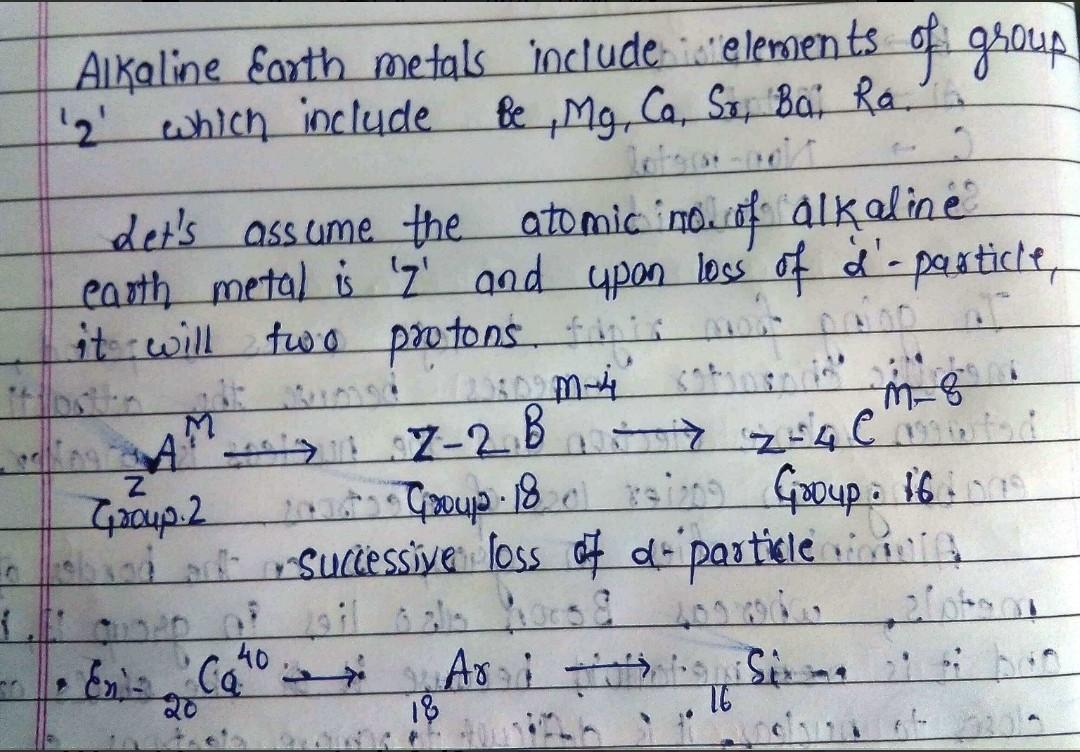 Alkaline Earth metals include elements of group
'2' which include Be, Mg, Ca, Sr, Ba, Ra.
Let's assume the atomic no. of alkaline
earth metal is 'Z' and upon loss of 'α'-particle,
it will two protons.
zA^M → Z-2 B^m-4 → z-4 C^m-8
Group.2 Group.18 Group. 16
successive loss of α-particle
• Ex:- 20Ca^40 → 18Ar → 16Si